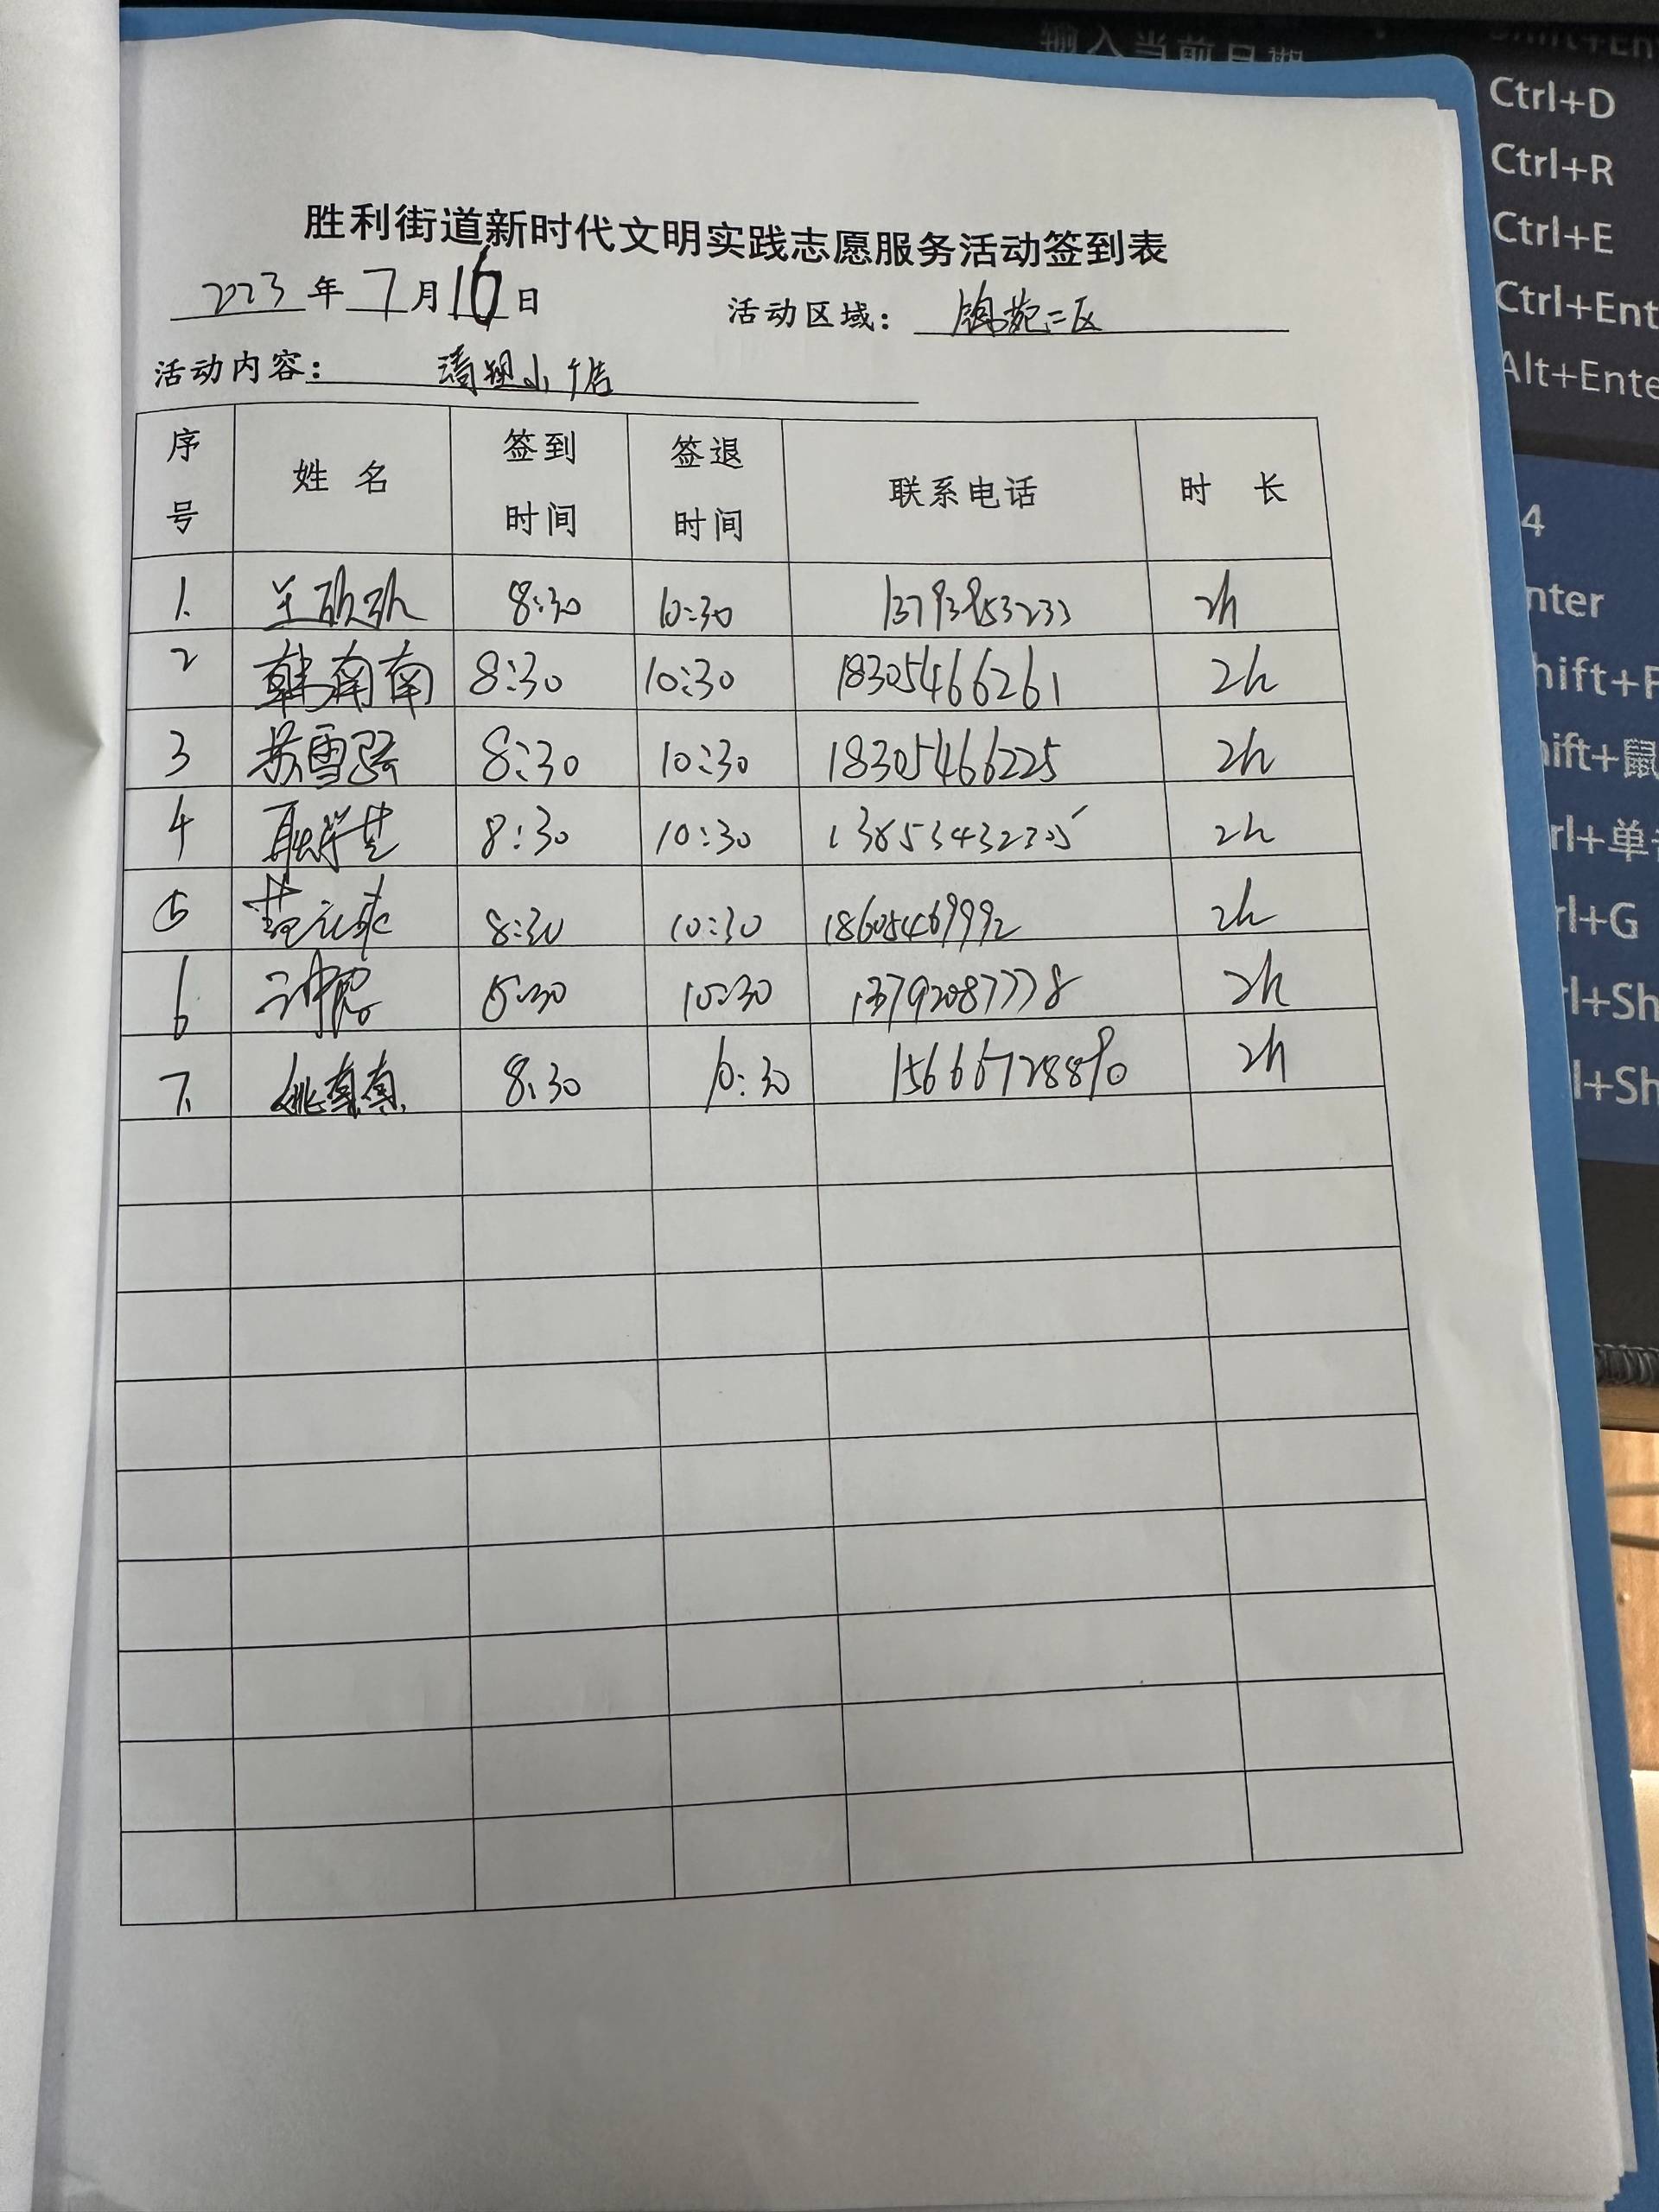 输入当前日期
Shift+En
Ctrl+D
Ctrl+R
Ctrl+E
Ctrl+Ent
Alt+Ente
4
nter
hift+F
hift+鼠
rl+单击
rl+G
rl+Sh
l+Sh
胜利街道新时代文明实践志愿服务活动签到表
2023 年 7 月 16 日 活动区域: 锦苑二区
活动内容: 清理小广告
序号 姓 名 签到时间 签退时间 联系电话 时 长
1. 8:30 10:30 13793853233 2h
2 韩南南 8:30 10:30 18305466261 2h
3 苏雪 8:30 10:30 18305466225 2h
4 耿 8:30 10:30 2h
5 范 8:30 10:30 18605469992 2h
6 8:30 10:30 13792087778 2h
7. 姚真真 8:30 10:30 2h